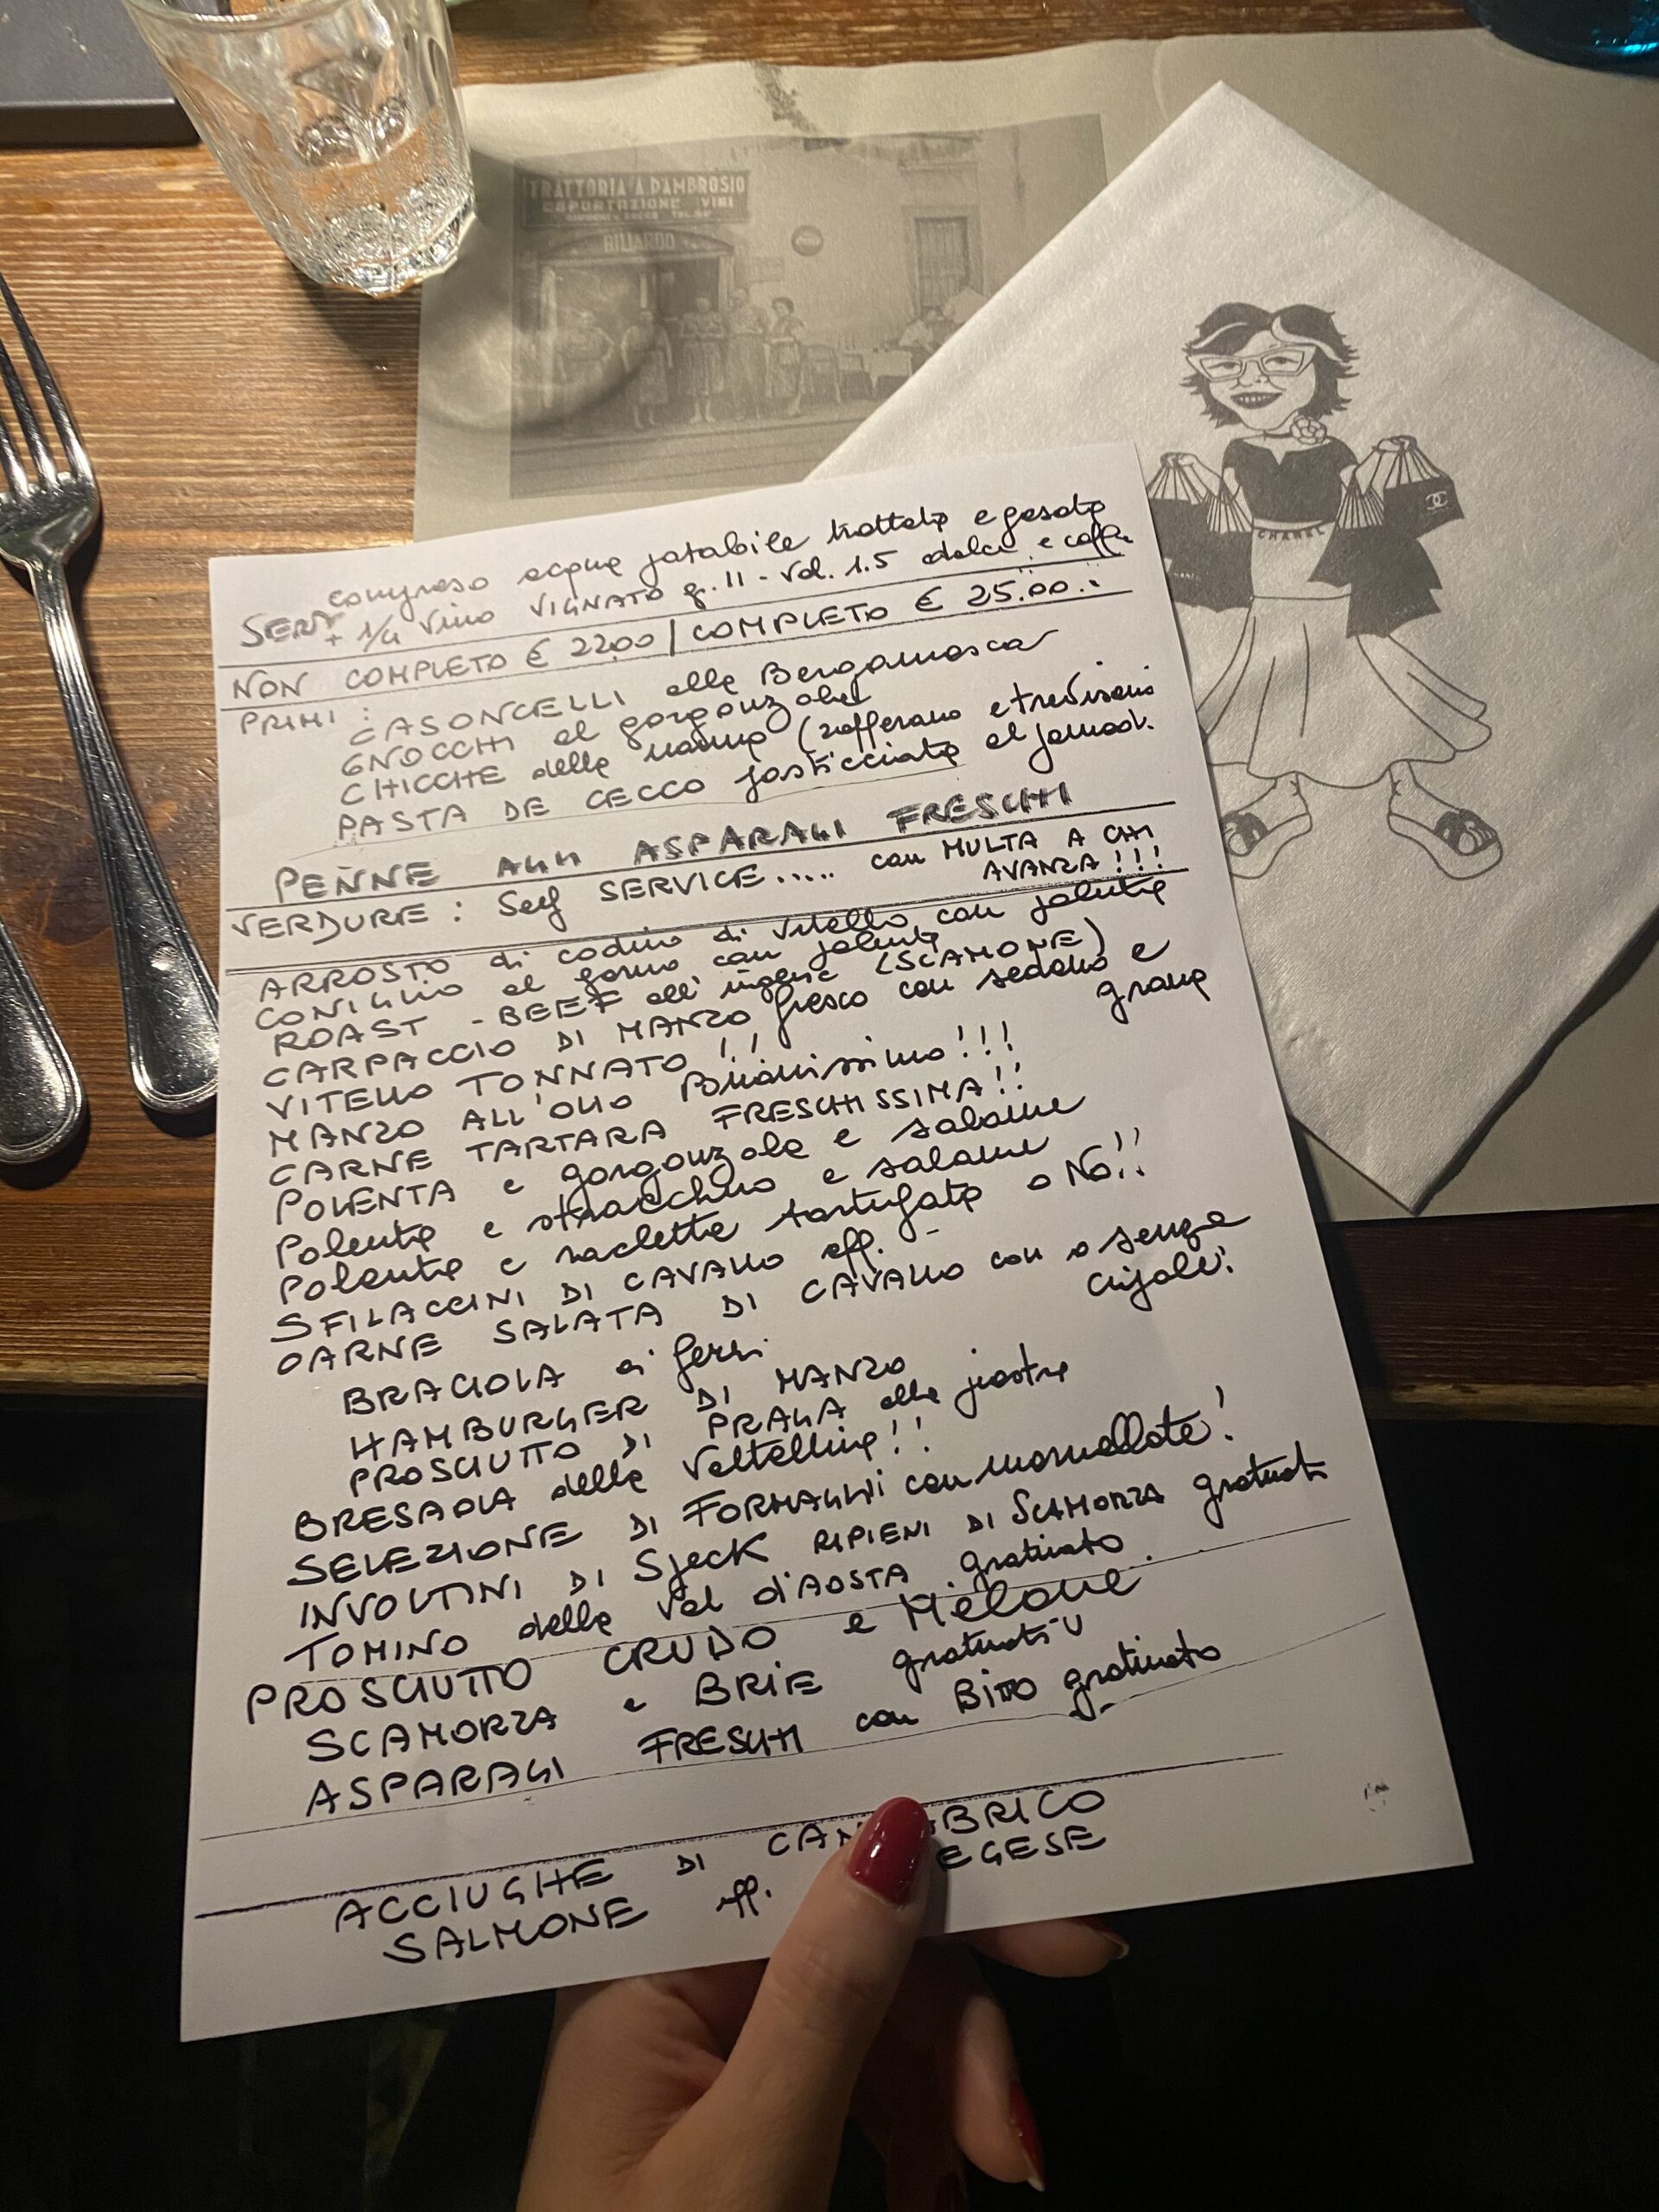 TRATTORIA A. D'AMBROSIO
ESPORTAZIONE VINI
BILIARDO
CHANEL
compreso acqua potabile trattata e gasata
SERA + 1/4 vino VIGNATO g. 11 - vol. 1.5 dolce e caffè
NON COMPLETO € 22.00 / COMPLETO € 25.00.-
PRIMI :
CASONCELLI alla Bergamasca
GNOCCHI al gorgonzola
CHICCHE della nonna (zafferano e trevisano
PASTA DE CECCO pasticciata al pomod.
PENNE AGLI ASPARAGI FRESCHI
VERDURE : Self SERVICE..... con MULTA A CHI
AVANZA!!!
ARROSTO di codino di vitello con polenta
CONIGLIO al forno con polenta
ROAST-BEEF all'inglese (SCAMONE)
CARPACCIO DI MANZO fresco con sedano e
grana
VITELLO TONNATO!!
MANZO ALL'OLIO Buonissimo!!!
CARNE TARTARA FRESCHISSIMA!!
POLENTA e gorgonzola e salame
Polenta e stracchino e salame
Polenta e raclette tartufata o NO!!
SFILACCINI DI CAVALLO aff.
CARNE SALATA DI CAVALLO con o senza
cipolle!
BRACIOLA ai ferri
HAMBURGER DI MANZO
PROSCIUTTO DI PRAGA alla piastra
BRESAOLA della Valtellina!!
SELEZIONE DI FORMAGGI con marmellate!
INVOLTINI DI SpecK RIPIENI DI SCAMORZA gratinati
TOMINO della Val d'AOSTA gratinato
PROSCIUTTO CRUDO e Melone
SCAMORZA e BRIE gratinati
ASPARAGI FRESCHI con Bitto gratinato
ACCIUGHE DI CAN BRICO
SALMONE aff. EGESE